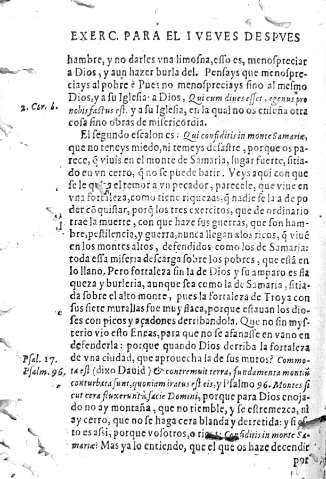 EXERC. PARA EL IVEVES DESPVES
hambre, y no darles vna limosna, esso es, menospreciar
a Dios, y aun hazer burla del. Pensays que menospre-
ciays al pobre? Pues no menospreciays sino al mesmo
Dios, y a su Iglesia: a Dios, Qui cum diues esset, egenus pro
2. Cor. 8.
nobis factus est. y a su Iglesia, en la qual no os enseña otra
cosa sino obras de misericordia.
El segundo escalon es: Qui confiditis in monte Samariæ,
que no teneys miedo, ni temeys desastre, porque os pare-
ce, q̃ viuis en el monte de Samaria, lugar fuerte, sitia-
do en vn cerro, q̃ no se puede batir. Veys aqui con que
se le el temor a vn pecador, parecele, que viue en
vna fortaleza, como tiene riquezas, q̃ nadie se la a de po
der cõquistar, porq̃ los tres exercitos, que de ordinario
trae la muerte, con que haze sus guerras, que son ham-
bre, pestilencia, y guerra, nunca llegan a los ricos, q̃ viuẽ
en los montes altos, defendidos como los de Samaria:
toda essa miseria descarga sobre los pobres, que estã en
lo llano. Pero fortaleza sin la de Dios y su amparo es fla
queza y burleria, aunque sea como la de Samaria, sitia-
da sobre el alto monte, pues la fortaleza de Troya con
sus siete murallas fue muy flaca, porque estauan los dio-
ses con picos y açadones derribandola. Que no sin mys-
terio vio esto Eneas, para que no se afanasse en vano en
defenderla: porque quando Dios derriba la fortaleza
Psal. 17.
de vna ciudad, que aprouecha la de sus muros? Commo-
ta est (dixo Dauid) & contremuit terra, fundamenta montiũ
Psalm. 96,
conturbata sunt, quoniam iratus est eis, y Psalmo 96. Montes si
cut cera fluxerunt à facie Domini, porque para Dios enoja-
do no ay montaña, que no tiemble, y se estremezca, ni
ay cerro, que no se haga cera blanda y derretida: y si es-
to es assi, porque vosotros, o Confiditis in monte Sa-
mariæ? Mas ya lo entiendo, que el que os haze decendir
por